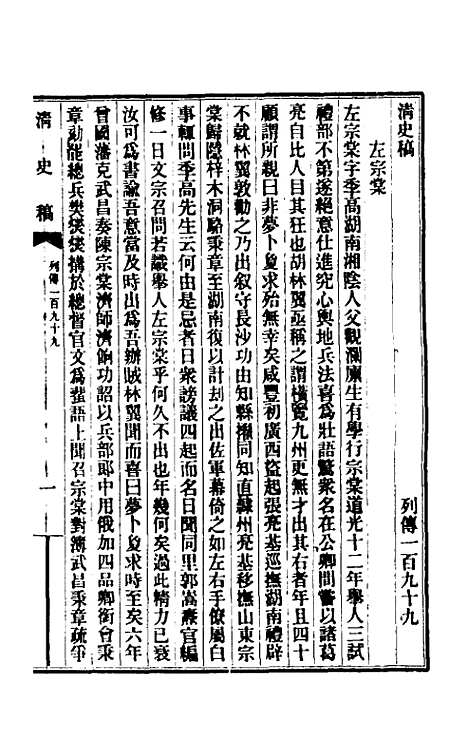 清史稿
列傳一百九十九
左宗棠
左宗棠字季高湖南湘陰人父觀瀾廩生有學行宗棠道光十二年舉人三試
禮部不第遂絕意仕進究心輿地兵法喜爲壯語驚衆名在公卿間嘗以諸葛
亮自比人目其狂也胡林翼亟稱之謂橫覽九州更無才出其右者年且四十
顧謂所親曰非夢卜敻求殆無幸矣咸豐初廣西盜起張亮基巡撫湖南禮辟
不就林翼敦勸之乃出叙守長沙功由知縣擢同知直隸州亮基移撫山東宗
棠歸隱梓木洞駱秉章至湖南復以計劫之出佐軍幕倚之如左右手僚屬白
事輒問季高先生云何由是忌者日衆謗議四起而名日聞同里郭嵩燾官編
修一日文宗召問若識舉人左宗棠乎何久不出也年幾何矣過此精力已衰
汝可爲書諭吾意當及時出爲吾辦賊林翼聞而喜曰夢卜敻求時至矣六年
曾國藩克武昌奏陳宗棠濟師濟餉功詔以兵部郎中用俄加四品卿銜會秉
章劾罷總兵樊燮燮搆於總督官文爲蜚語上聞召宗棠對簿武昌秉章疏爭
清史稿
列傳一百九十九
一